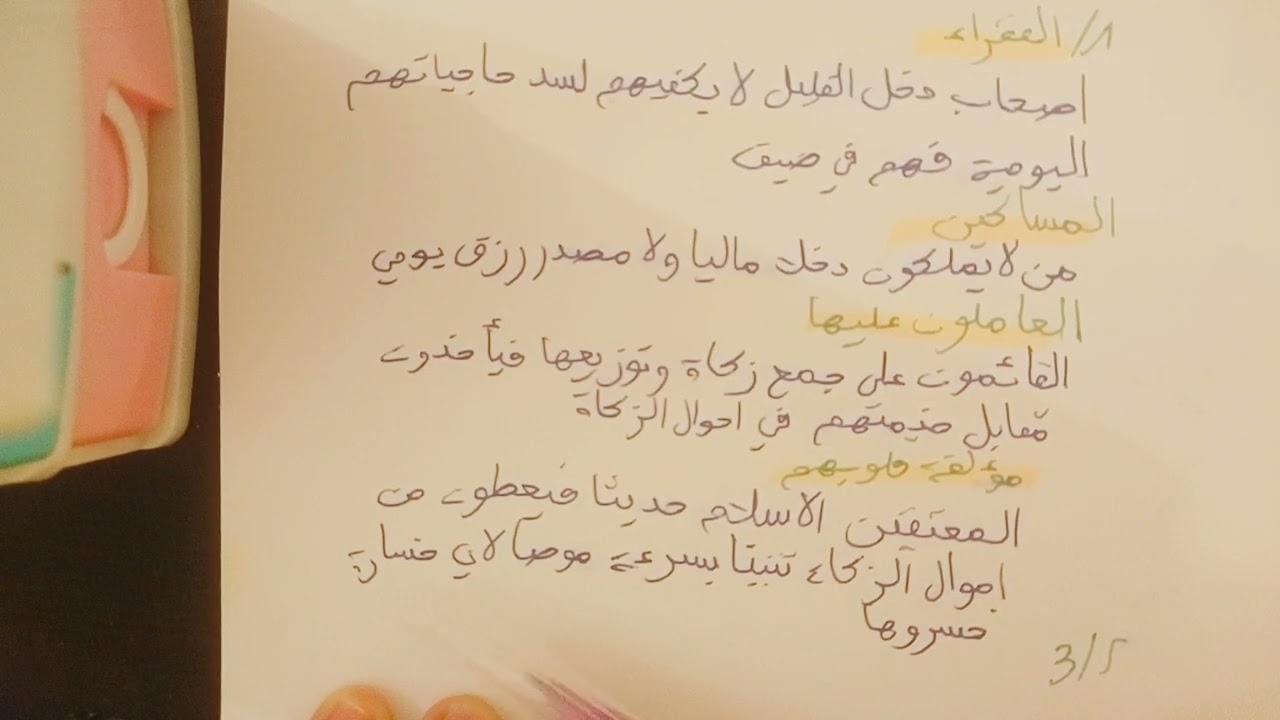 1/ الفقراء
اصحاب دخل القليل لا يكفيهم لسد حاجياتهم
اليومية فهم في ضيق
المساكين
من لا يملكون دخلا ماليا ولا مصدر رزق يومي
العاملون عليها
القائمون على جمع زكاة وتوزيعها فيأخذون
مقابل خدمتهم في احوال الزكاة
مؤلفة قلوبهم
المعتنقين الاسلام حديثا فيعطون من
اموال الزكاة تثبيتا بسرعة لاي خسارة
خسروها
3/2